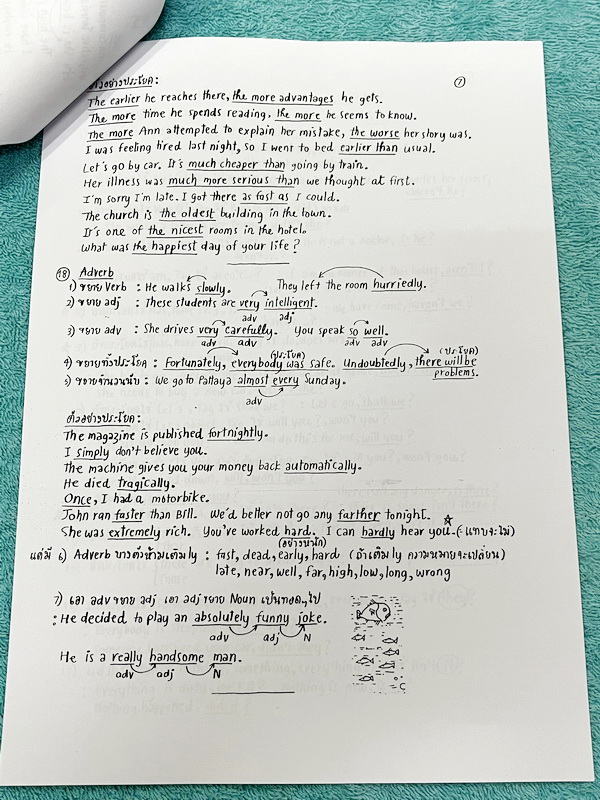 ตัวอย่างประโยค : 7
The earlier he reaches there, the more advantages he gets.
The more time he spends reading, the more he seems to know.
The more Ann attempted to explain her mistake, the worse her story was.
I was feeling tired last night, so I went to bed earlier than usual.
Let's go by car. It's much cheaper than going by train.
Her illness was much more serious than we thought at first.
I'm sorry I'm late. I got there as fast as I could.
The church is the oldest building in the town.
It's one of the nicest rooms in the hotel.
What was the happiest day of your life ?
18 Adverb
1) ขยาย Verb : He walks slowly. They left the room hurriedly.
2) ขยาย adj : These students are very intelligent.
adv adj
3) ขยาย adv : She drives very carefully. You speak so well.
adv adv adv adv
(ประโยค) (ประโยค)
4) ขยายทั้งประโยค : Fortunately, everybody was safe. Undoubtedly, there will be
problems.
5) ขยายจำนวนนับ : We go to Pattaya almost every Sunday.
adv
ตัวอย่างประโยค :
The magazine is published fortnightly.
I simply don't believe you.
The machine gives you your money back automatically.
He died tragically.
Once, I had a motorbike.
John ran faster than Bill. We'd better not go any farther tonight.
She was extremely rich. You've worked hard. I can hardly hear you. (= แทบจะไม่)
(อย่างหนัก)
แต่มี 6) Adverb บางตัวห้ามเติม ly : fast, dead, early, hard (ถ้าเติม ly ความหมายจะเปลี่ยน)
late, near, well, far, high, low, long, wrong
7) เอา adv ขยาย adj เอา adj ขยาย Noun เป็นทอดๆไป
: He decided to play an absolutely funny joke.
adv adj N
He is a really handsome man.
adv adj N